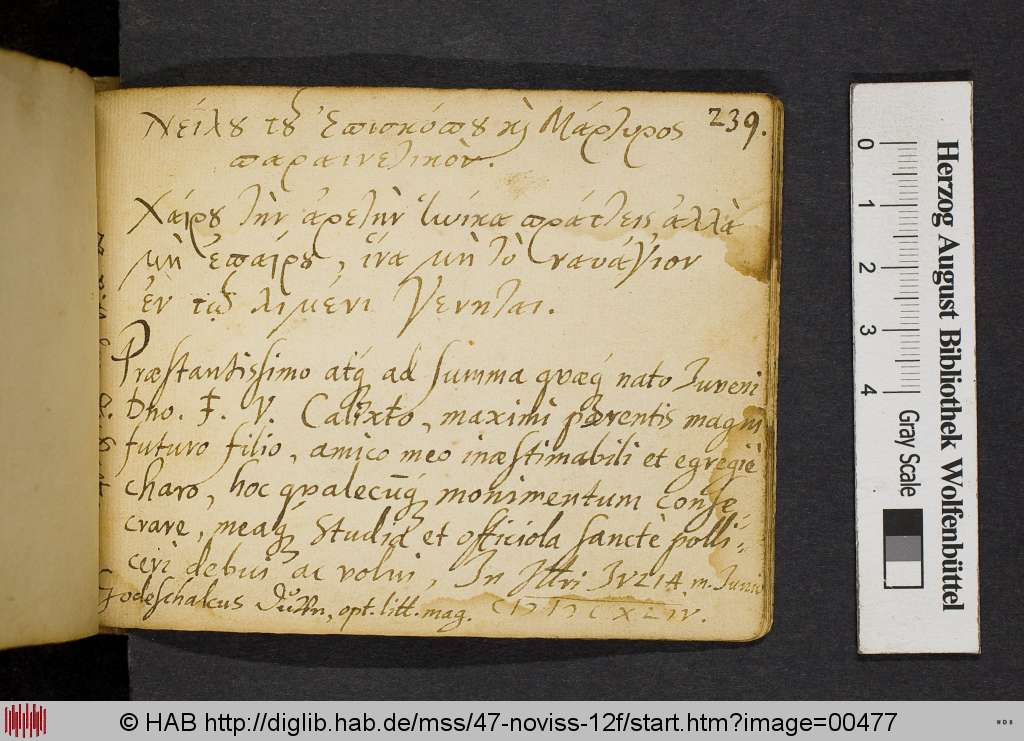 239.
Νείλου τοῦ Ἐπισκόπου κὶ Μάρτυρος
παραινετικὸν.
Χαίρου τὴν ἀρετὴν πράττεις ἀλλὰ
μὴ ἐπαίρου, ἵνα μὴ τὸ ναυάγιον
ἐν τῷ λιμένι γένηται.
Præstantissimo atq̃ ad summa quæq́ nato Iuveni
Dno. F. V. Calixto, maximi parentis magni
futuro filio, amico meo inæstimabili et egregiè
charo, hoc qualecunq́ monimentum conse
crare, meaq́ Studia et officiola sanctè polli-
ceri debui ac volui, In m. Junio
Godeschalcus opt. litt. mag. XLIV.
0 1 2 3 4
Gray Scale
Herzog August Bibliothek Wolfenbüttel
© HAB http://diglib.hab.de/mss/47-noviss-12f/start.htm?image=00477
WDB